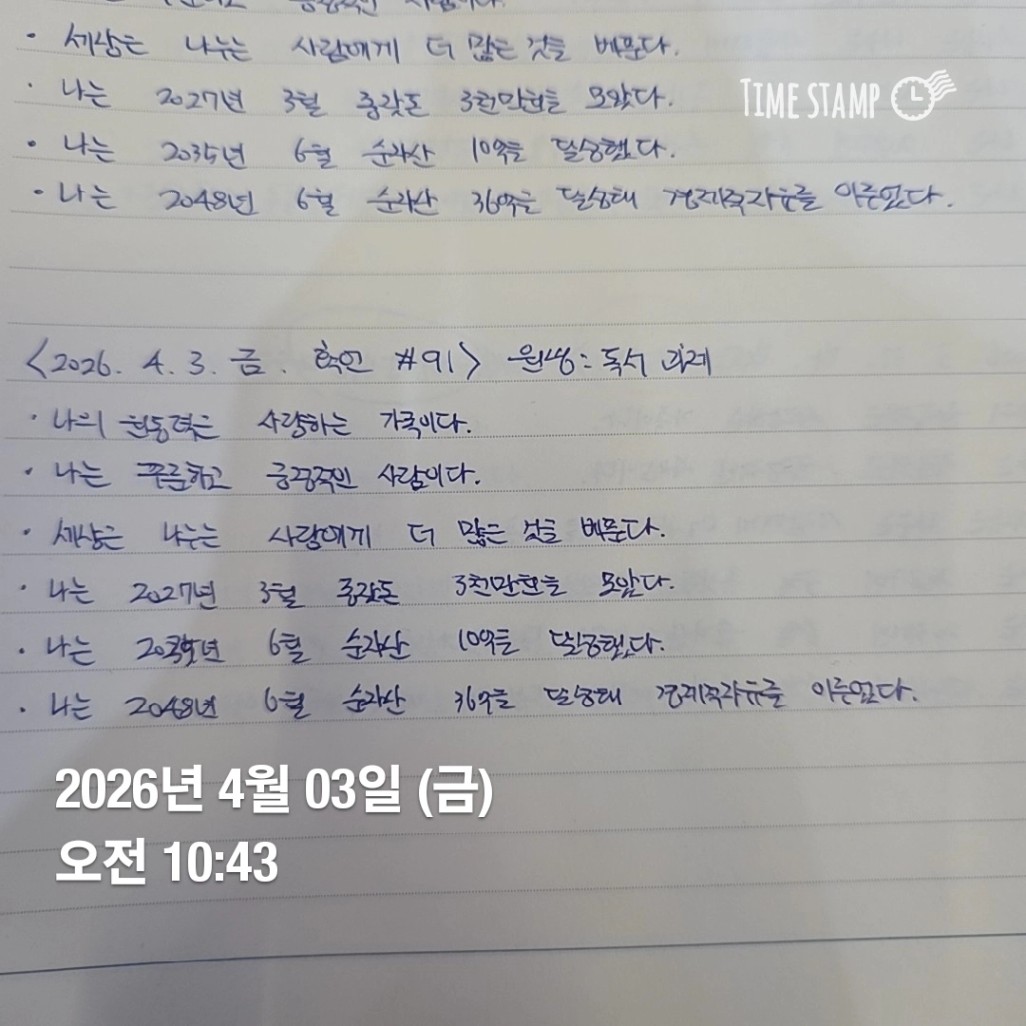 긍정적인 사람이다.
· 세상은 나누는 사람에게 더 많은 것을 베푼다.
· 나는 2027년 3월 종잣돈 3천만원을 모았다.
· 나는 2035년 6월 순자산 10억을 달성했다.
· 나는 2048년 6월 순자산 36억을 달성해 경제적자유를 이루었다.
TIME STAMP
<2026. 4. 3. 금. 확언 #91> 원씽: 독서 과제
· 나의 원동력은 사랑하는 가족이다.
· 나는 푸름하고 긍정적인 사람이다.
· 세상은 나누는 사람에게 더 많은 것을 베푼다.
· 나는 2027년 3월 종잣돈 3천만원을 모았다.
· 나는 2035년 6월 순자산 10억을 달성했다.
· 나는 2048년 6월 순자산 36억을 달성해 경제적자유를 이루었다.
2026년 4월 03일 (금)
오전 10:43